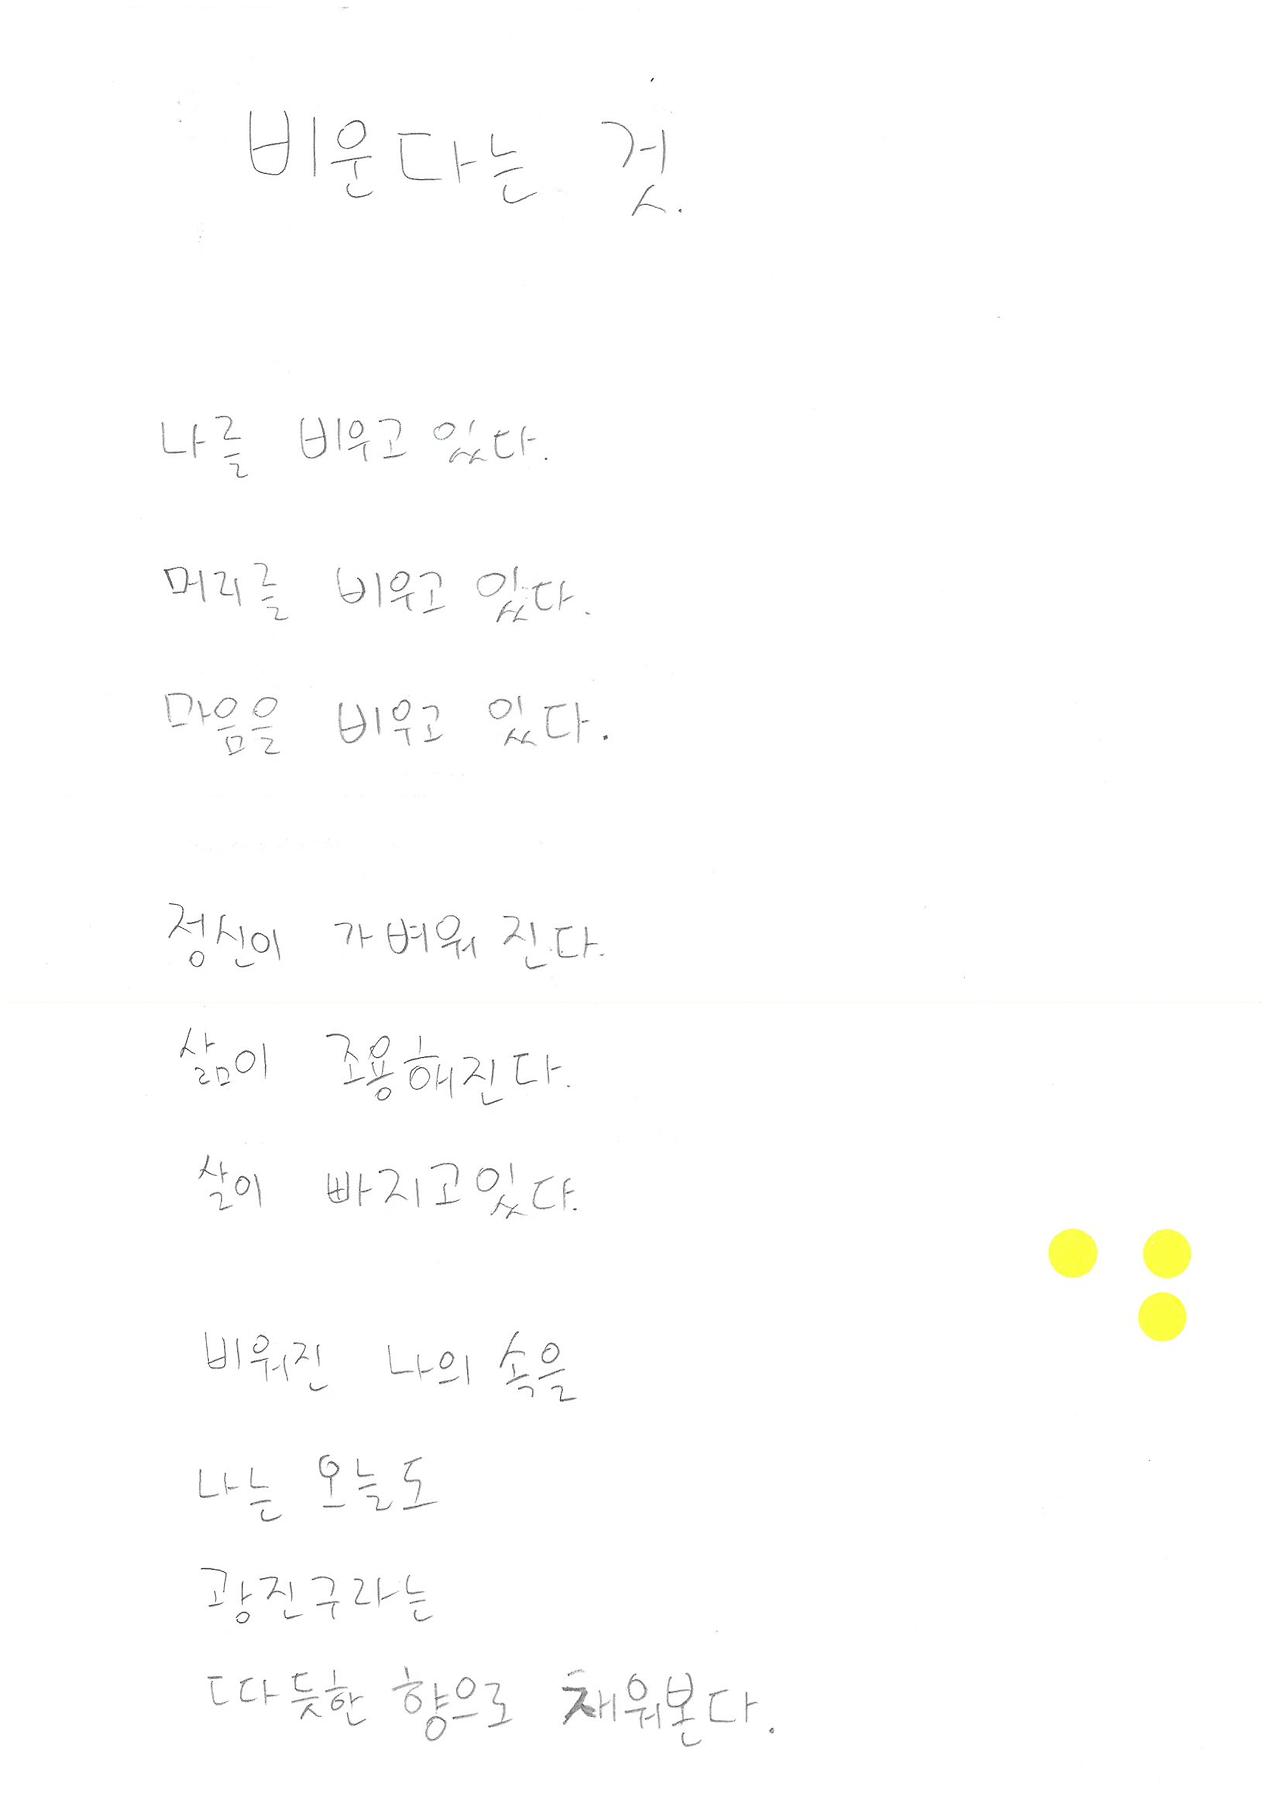 비운다는 것.
나를 비우고 있다.
머리를 비우고 있다.
마음을 비우고 있다.
정신이 가벼워 진다.
삶이 조용해진다.
살이 빠지고있다.
비워진 나의 속을
나는 오늘도
광진구라는
따듯한 향으로 채워본다.